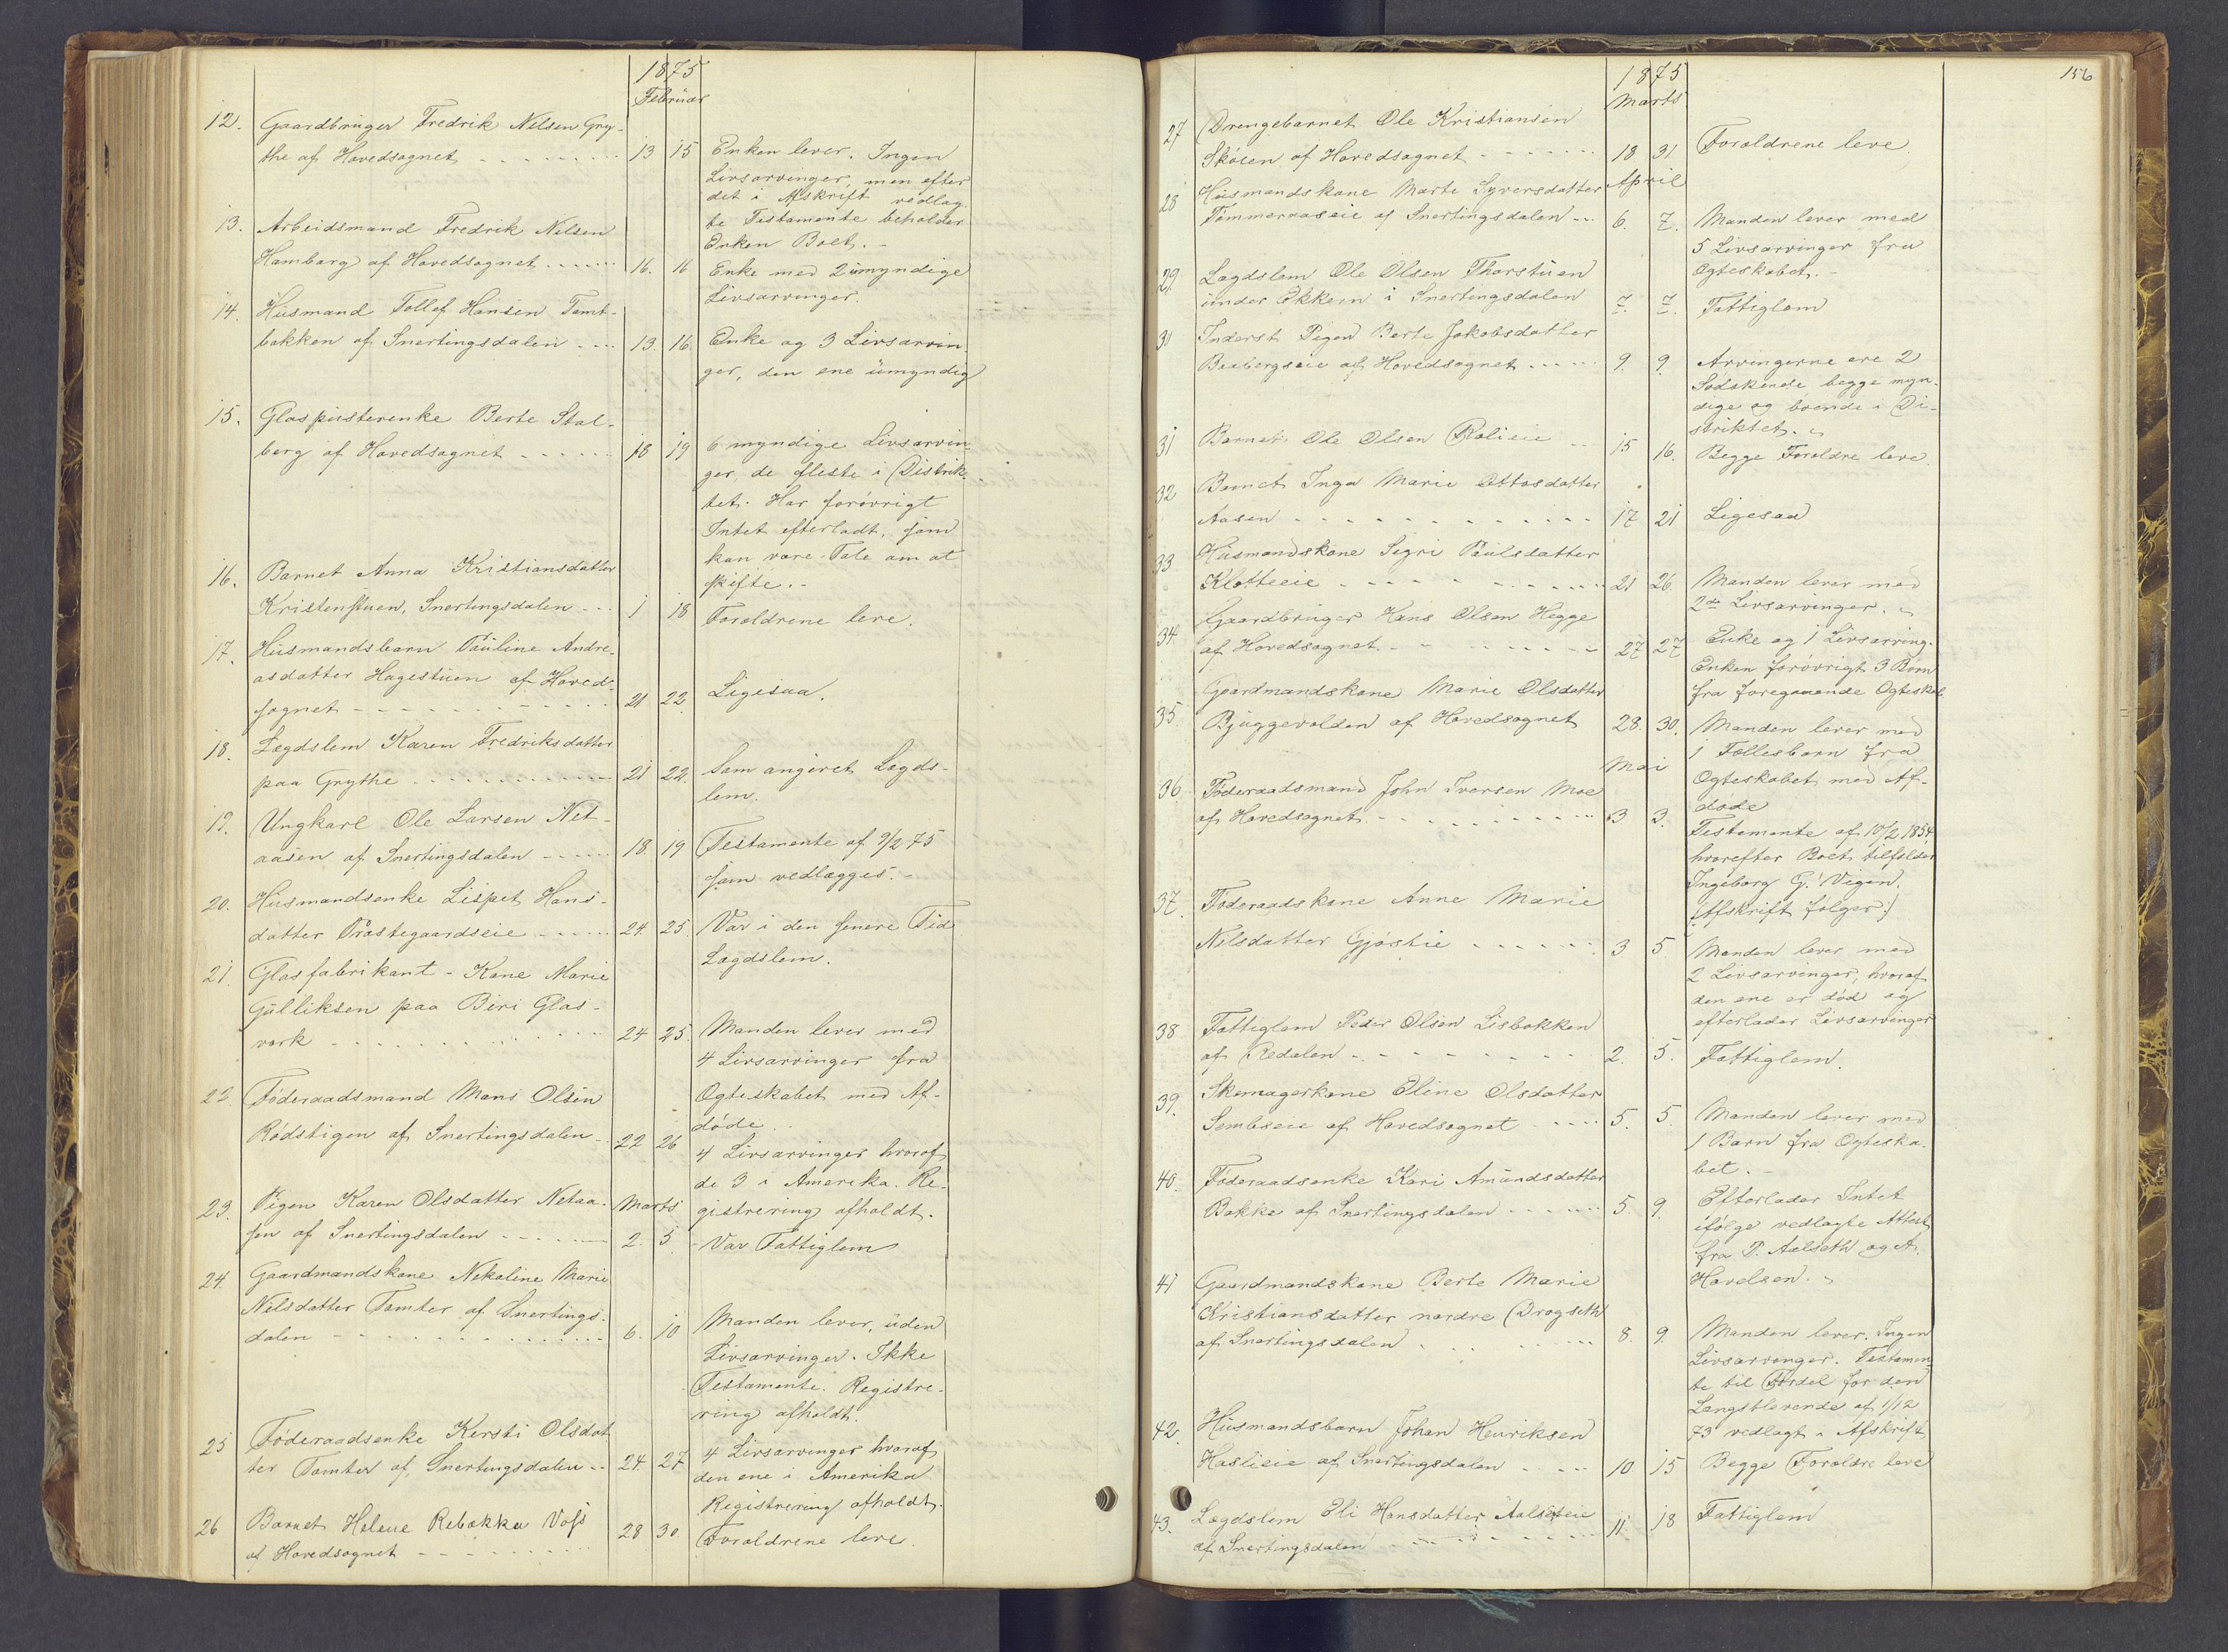 1875
Februar
12. Gaardbruger Fredrik Nilsen Gry-
the af Hovedsognet 13 15 Enken lever. Ingen
Livsarvinger, men efter
det i Afskrift vedlag-
te Testamente beholder
Enken Boet. -
13. Arbeidsmand Fredrik Nilsen
Hamborg af Hovedsognet 16. 16 Enke med 2 umyndige
Livsarvinger.
14. Husmand Tollef Hansen Tomt-
bakken af Snertingsdalen 13. 16. Enke og 3 Livsarvin-
ger, den ene umyndig
15. Glaspusterenke Berte Stal-
berg af Hovedsognet 18 19 6 myndige Livsarvin-
ger, de fleste i Distrik-
tet. Har forøvrigt
Intet efterladt, som
kan være Tale om at
skifte. -
16. Barnet Anna Kristiansdatter
Kristenstuen, Snertingsdalen 1 18 Forældrene leve.
17. Husmandsbarn Pauline Andre-
asdatter Hagestuen af Hoved-
sognet 21 22. Ligesaa.
18. Lægdslem Karen Fredriksdatter
paa Grythe 21 22. Som angivet Lægds-
lem.
19. Ungkarl Ole Larsen Net-
aasen af Snertingsdalen 18. 19 Testamente af 9/2 75
som vedlægges. -
20. Husmandsenke Lispet Hans-
datter Præstegaardseie 24. 25. Var i den senere Tid
Lægdslem.
21. Glasfabrikant-Kone Marie
Gulliksen paa Biri Glas-
værk 24 25. Manden lever med
4 Livsarvinger fra
Ogteskabet med Af-
døde.
22. Føderaadsmand Mons Olsen
Rødstigen af Snertingsdalen 22 26 4 Livsarvinger hvoraf
de 3 i Amerika. Re-
gistrering afholdt.
Marts
23. Pigen Karen Olsdatter Netaa-
sen af Snertingsdalen 2. 5. Var Fattiglem
24. Gaardmandskone Nekoline Marie
Nilsdatter Tomter af Snertings-
dalen 6. 10 Manden lever, uden
Livsarvinger. Ikke
Testamente. Registre-
ring afholdt.
25 Føderaadsenke Kersti Olsdat-
ter Tomter af Snertingsdalen 24. 27. 4 Livsarvinger hvoraf
den ene i Amerika
Registrering afholdt.
26 Barnet Helene Rebekka Voss
af Hovedsognet 28 30. Forældrene leve.
156
1875
Marts
27 Drengebarnet Ole Kristiansen
Skoien af Hovedsognet 18 31 Forældrene leve
April
28 Husmandskone Marte Syversdatter
Tømmeraaseie af Snertingsdalen 6. 7. Manden lever med
5 Livsarvinger fra
Ogteskabet. -
29. Lægdslem Ole Olsen Thorstuen
under Ekkern i Snertingsdalen 7. 7. Fattiglem
31 Inderst Pigen Berte Jakobsdatter
Baabergseie af Hovedsognet 9. 9. Arvingerne ere 2
Sødskende begge myn-
dige og boende i Di-
striktet.
31 Barnet Ole Olsen Rolieie 15 16. Begge Forældre leve.
32 Barnet Inga Marie Ottosdatter
Aasen 17. 21 Ligesaa
33 Husmandskone Sigri Paulsdatter
Klotteeie 21 26. Manden lever med
2de Livsarvinger.
34. Gaardbruger Hans Olsen Hegge
af Hovedsognet 27. 27 Enke og 1 Livsarving.
Enken forøvrigt 3 Børn
fra foregaaende Ogteskab.
35. Gaardmandskone Marie Olsdatter
Bjuggevolden af Hovedsognet 28. 30. Manden lever med
1 Fællesbarn fra
Ogteskabet med Af-
døde
Mai
36. Føderaadsmand John Iversen Moe
af Hovedsognet 3 3. Testamente af 10/2 1854
hvorefter Boet tilfalder
Ingeborg G. Vigen.
(Afskrift følger.)
37. Føderaadskone Anne Marie
Nilsdatter Gjøstie 3 5 Manden lever med
2 Livsarvinger, hvoraf
den ene er død og
efterlader Livsarvinger
38 Fattiglem Peder Olsen Lisbakken
af Redalen 2. 5. Fattiglem.
39. Skomagerkone Eline Olsdatter
Sembseie af Hovedsognet 5. 5. Manden lever med
1 Barn fra Ogteska-
bet. -
40. Føderaadsenke Kari Amundsdatter
Bakke af Snertingsdalen 5. 9. Efterlader Intet
ifølge vedlagte Attest
fra P. Aalseth og A.
Hovelsen.
41 Gaardmandskone Berte Marie
Kristiansdatter nordre Drogseth
af Snertingsdalen 8. 9. Manden lever. Ingen
Livsarvinger. Testamen-
te til Fordel for den
Længstlevende af 1/12
73 vedlagt i Afskrift
42. Husmandsbarn Johan Henriksen
Haslieie af Snertingsdalen 10 15 Begge Forældre leve
43. Lægdslem Eli Hansdatter Aalseteie
af Snertingsdalen 11. 18 Fattiglem